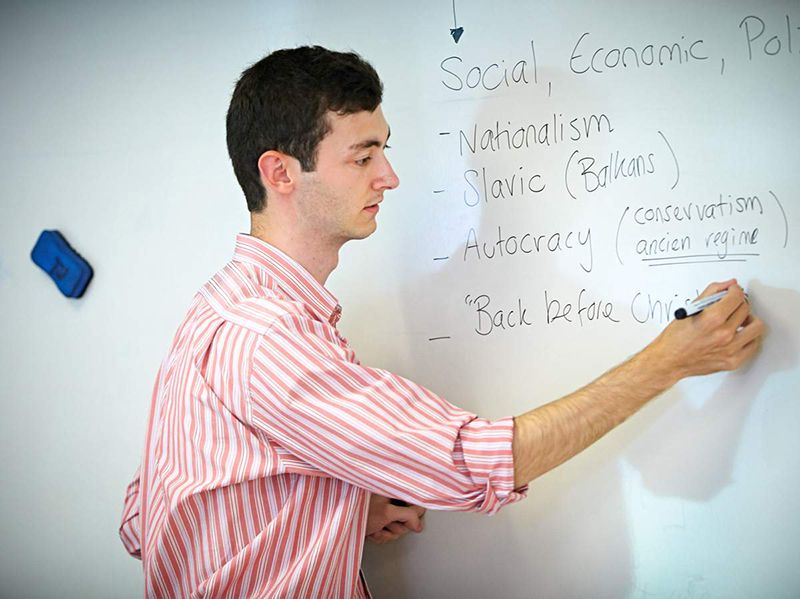 Social, Economic, Pol
- Nationalism
- Slavic (Balkans)
- Autocracy (conservatism
ancien regime)
- "Back before Chris